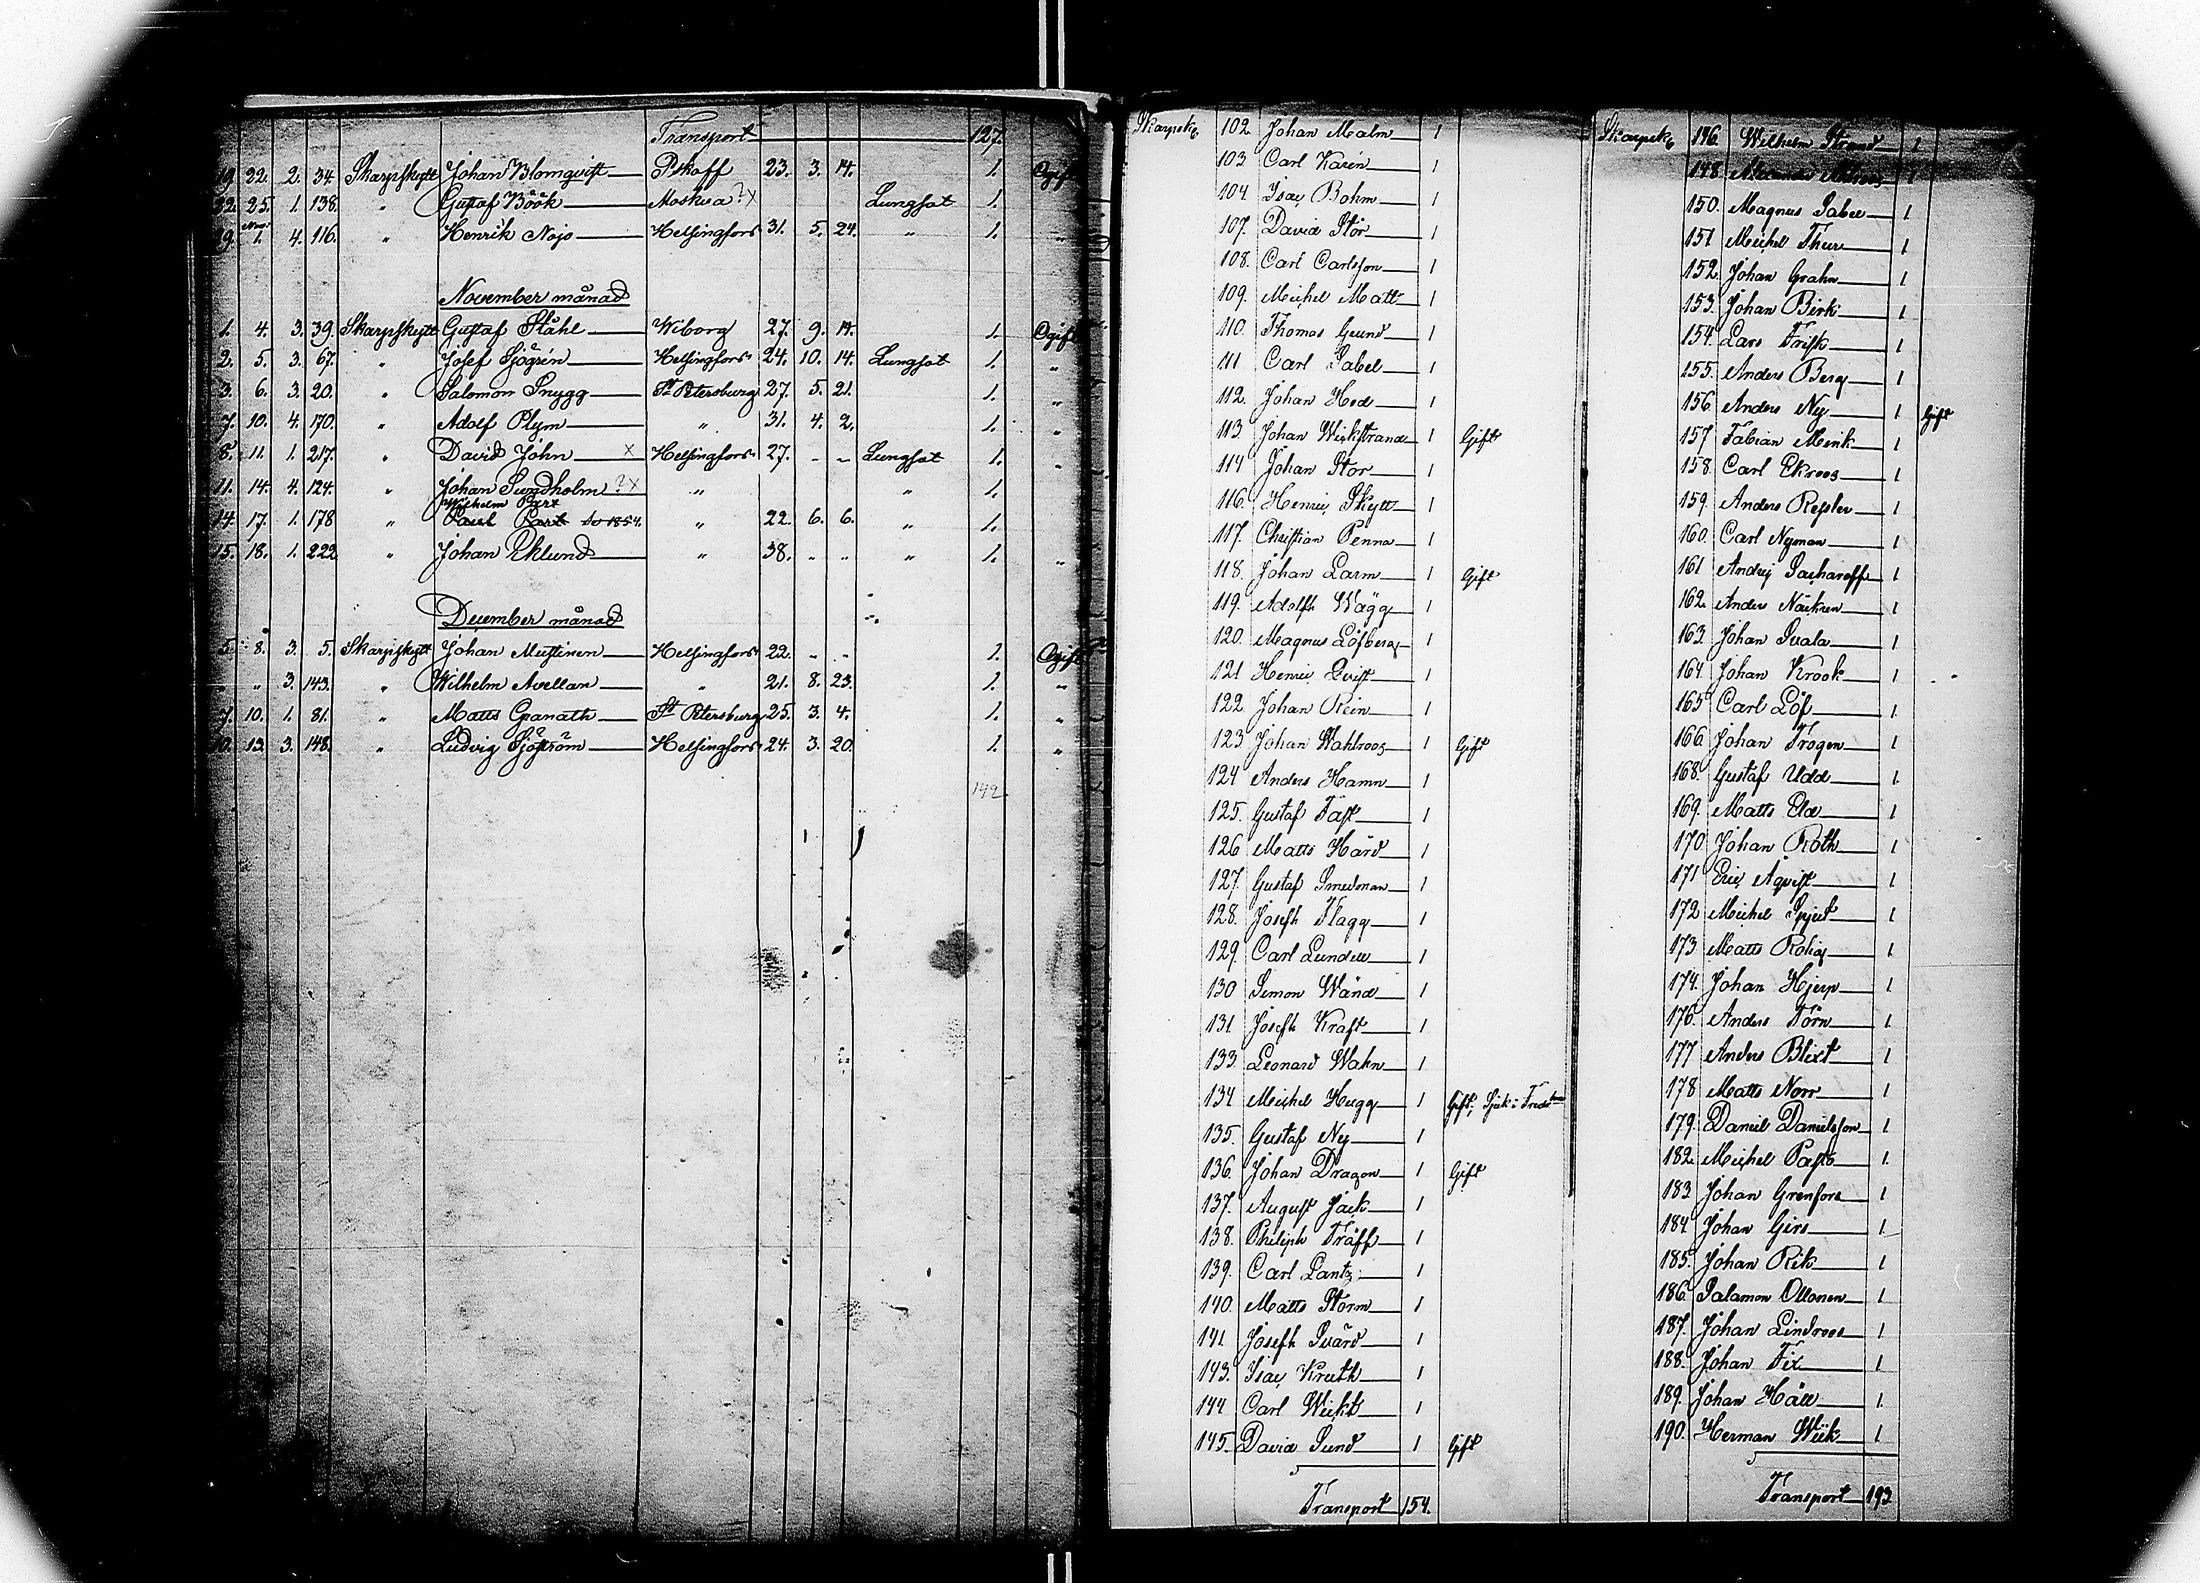 Transport 127.
19. 22. 2. 34. Skarpskytt Johan Blomqvist Pskoff 23. 3. 14. 1. Ogift
22. 25. 1. 138. " Gustaf Böök Moskva ?x Lungsot 1.
29. Nov: 1. 4. 116. " Henrik Nojs Helsingfors 31. 5. 24. " 1. "
November månad
1. 4. 3. 39. Skarpskytt Gustaf Ståhl Wiborg 27. 9. 14. 1. Ogift
2. 5. 3. 67. " Josef Sjögrén Helsingfors 24. 10. 14. Lungsot 1. "
3. 6. 3. 20. " Salomon Snygg St Petersburg 27. 5. 21. 1. "
7. 10. 4. 170. " Adolf Plym " 31. 4. 2. 1. "
8. 11. 1. 217. " David John x Helsingfors 27. - - Lungsot 1. "
11. 14. 4. 124. " Johan Sundholm ?x " " 1.
Wilhelm Part
14. 17. 1. 178 " Paul Part 22. 6. 6. " 1.
15. 18. 1. 222 " Johan Eklund " 38. .. .. " 1. "
December månad
5. 8. 3. 5. Skarpskytt Johan Mustinen Helsingfors 22. - - 1. Ogift
" " 3. 143. " Wilhelm Avellan " 21. 8. 23. 1. "
7. 10. 1. 81. " Matts Granath St Petersburg 25. 3. 4. 1. "
10. 13. 3. 148. " Ludvig Sjöström Helsingfors 24. 3. 20. 1. "
142
Skarpsk. 102. Johan Malm 1
103 Carl Karén 1
104. Isac Bohm 1
107. David Stör 1
108. Carl Carlsson 1
109. Michel Matt 1
110. Thomas Grund 1
111 Carl Sabel 1
112. Johan Hed 1
113. Johan Wickstrand 1 Gift
114 Johan Stor 1
116. Henric Skytt 1
117. Christian Penna 1
118. Johan Larm 1 Gift
119. Adolph Wägg 1
120. Magnus Löfberg 1
121 Henric Qvist 1
122 Johan Rein 1
123 Johan Wahlroos 1 Gift
124 Anders Hamn 1
125. Gustaf Fast 1
126 Matts Hård 1
127. Gustaf Smedman 1
128. Joseph Flagg 1
129. Carl Lundell 1
130 Simon Wänd 1
131 Joseph Kraft 1
133. Leonard Wahn 1
134 Michel Hugg 1 Gift; Sjuk i
135. Gustaf Ny 1
136. Johan Dragon 1 Gift
137. August Jack 1
138. Philiph Träff 1
139. Carl Lantz 1
140. Matts Storm 1
141 Joseph Svärd 1
143. Isac Kruth 1
144 Carl Wickt 1
145. David Sund 1 Gift
Transport 154.
Skarpsk. 146. Wilhelm Strand 1
148 1
150. Magnus Sabel 1
151 Michel Thur 1
152. Johan Grahn 1
153. Johan Birk 1
154. Lars Frisk 1
155. Anders Berg 1
156 Anders Ny 1 Gift
157 Fabian Mink 1
158. Carl Ekroos 1
159. Anders Ressler 1
160. Carl Nyman 1
161 Andrej Sacharoff 1
162. Anders Näckren 1
163. Johan Svala 1
164. Johan Krook 1
165 Carl Löf 1
166. Johan Trogen 1
168. Gustaf Udd 1
169. Matts Eld 1
170 Johan Roth 1
171 Eric Aqvist 1
172 Michel Spjut 1
173 Matts Rolig 1
174. Johan Hjerp 1
176. Anders Törn 1
177 Anders Blixt 1
178 Matts Norr 1
179. Daniel Danielsson 1
182. Michel Pass 1
183 Johan Grenfors 1
184 Johan Girs 1
185. Johan Rik 1
186. Salamon Ollonen 1
187. Johan Lindroos 1
188. Johan Fix 1
189. Johan Häll 1
190. Herman Wiik 1
Transport 193